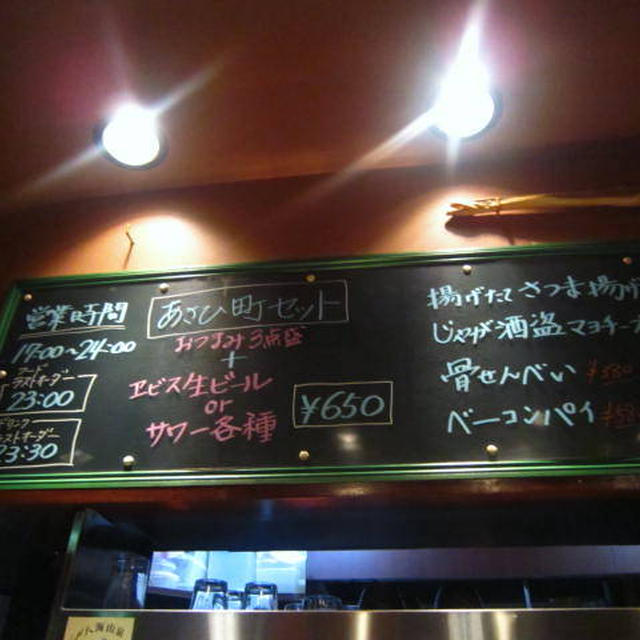 営業時間
17:00~24:00
フード
ラストオーダー
23:00
ドリンク
ラストオーダー
23:30
あさひ町セット
おつまみ3点盛
+
ヱビス生ビール
or
サワー各種
¥650
揚げたてさつま揚げ
じゃが酒盗マヨチー
骨せんべい
ベーコンパイ